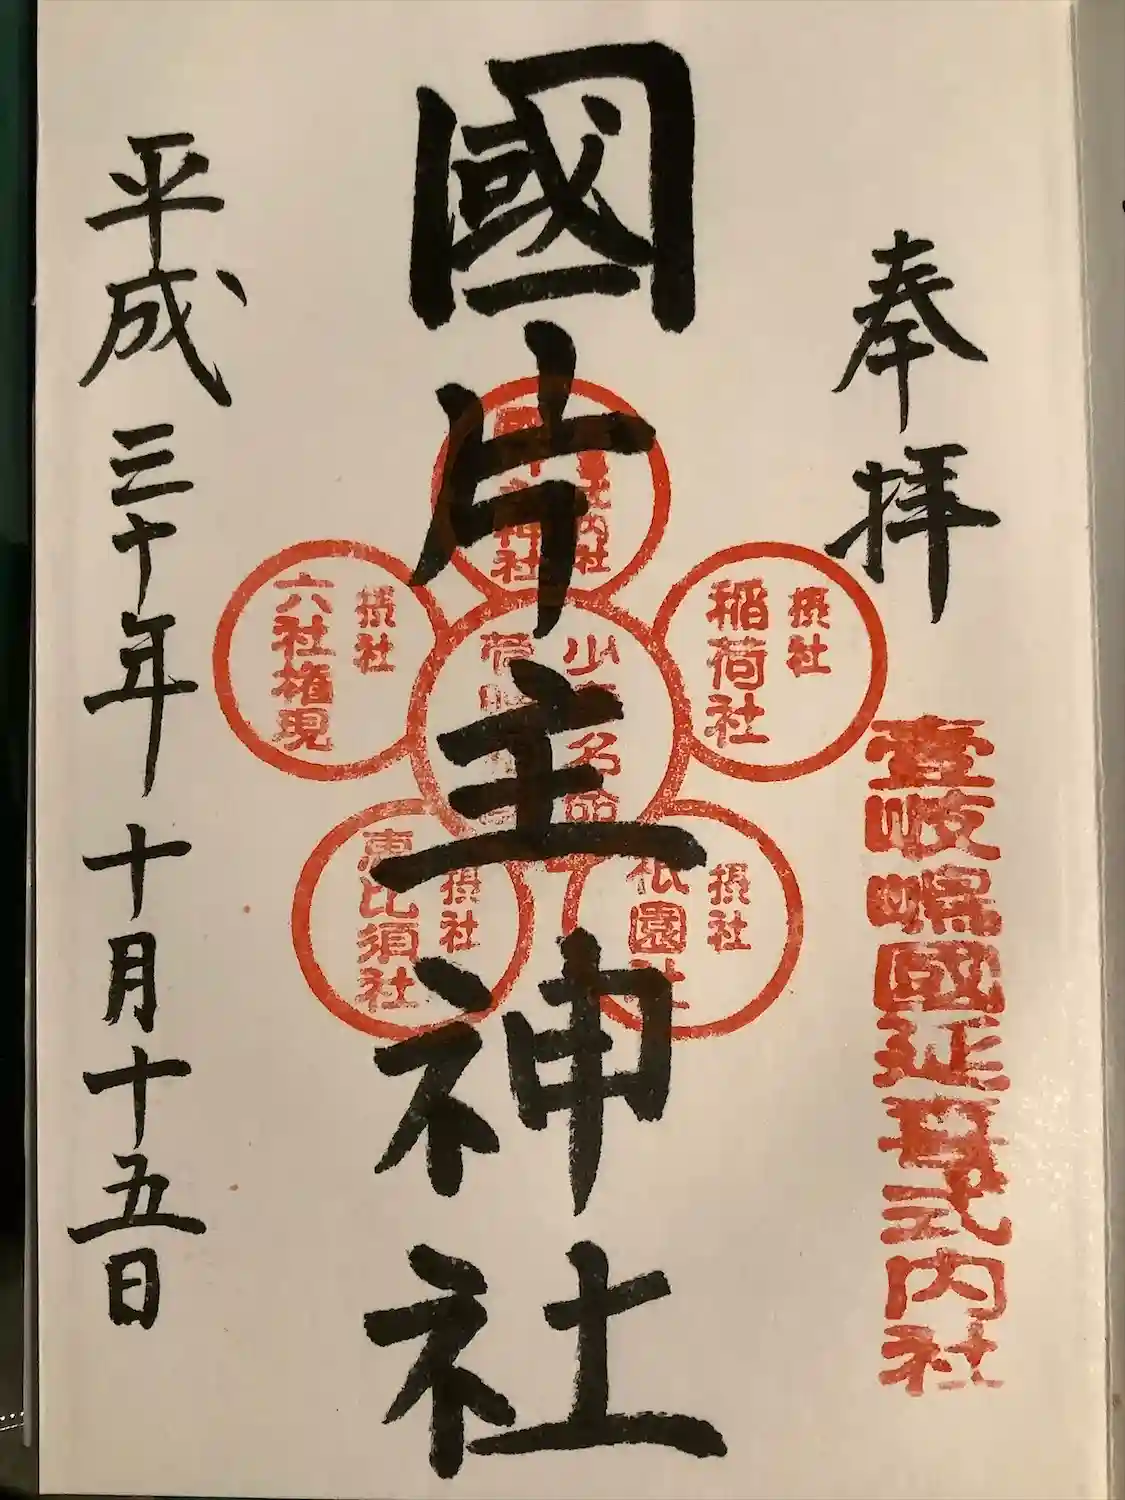 奉拝
壹岐嶋國延喜式内社
國片主神社
式内社
國片主神社
少彦名命
摂社
稲荷社
摂社
祇園社
摂社
恵比須社
摂社
六社権現
平成三十年十月十五日